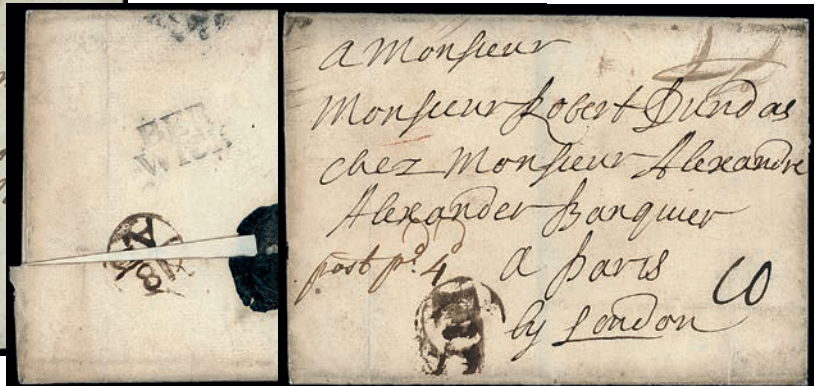 BER
WICK
A Monsieur
Monsieur Robert Dundas
chez Monsieur Alexandre
Alexander Banquier
post pd. 4d
a Paris
by London
10